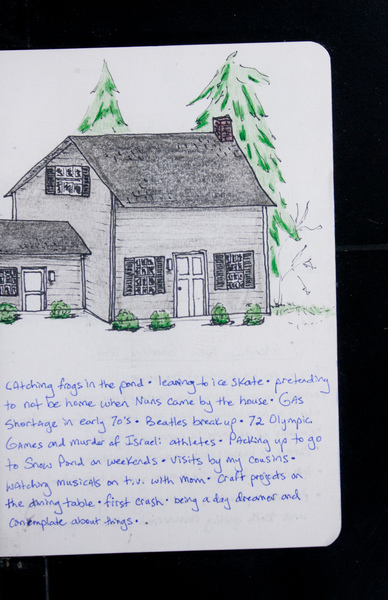 catching frogs in the pond • learning to ice skate • pretending
to not be home when Nuns came by the house • GAS
Shortage in early 70's • Beatles breakup • 72 Olympic
Games and murder of Israeli athletes • Packing up to go
to Snow Pond on weekends • visits by my cousins •
watching musicals on t.v. with mom • Craft projects on
the dining table • first crush • being a day dreamer and
contemplate about things • .